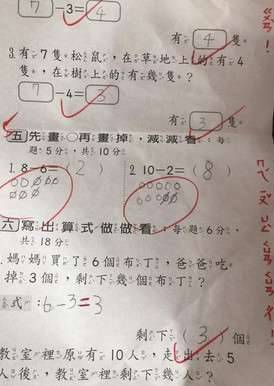 7 -3= 4
有 4 隻。
3.有7隻松鼠,在草地上的有4
隻。在樹上的有幾隻?
7 -4= 3
有 3 隻。
五 先畫○再畫掉,減減看:每
題5分,共10分
1. 8-6=( 2 ) 2. 10-2=( 8 )
六 寫出算式做做看:每題6分,
共18分
.媽媽買了6個布丁,爸爸吃
掉3個,剩下幾個布丁?
算式:6-3=3
剩下( 3 )個
教室裡原有10人,走出去5
人後,教室裡剩下幾人?